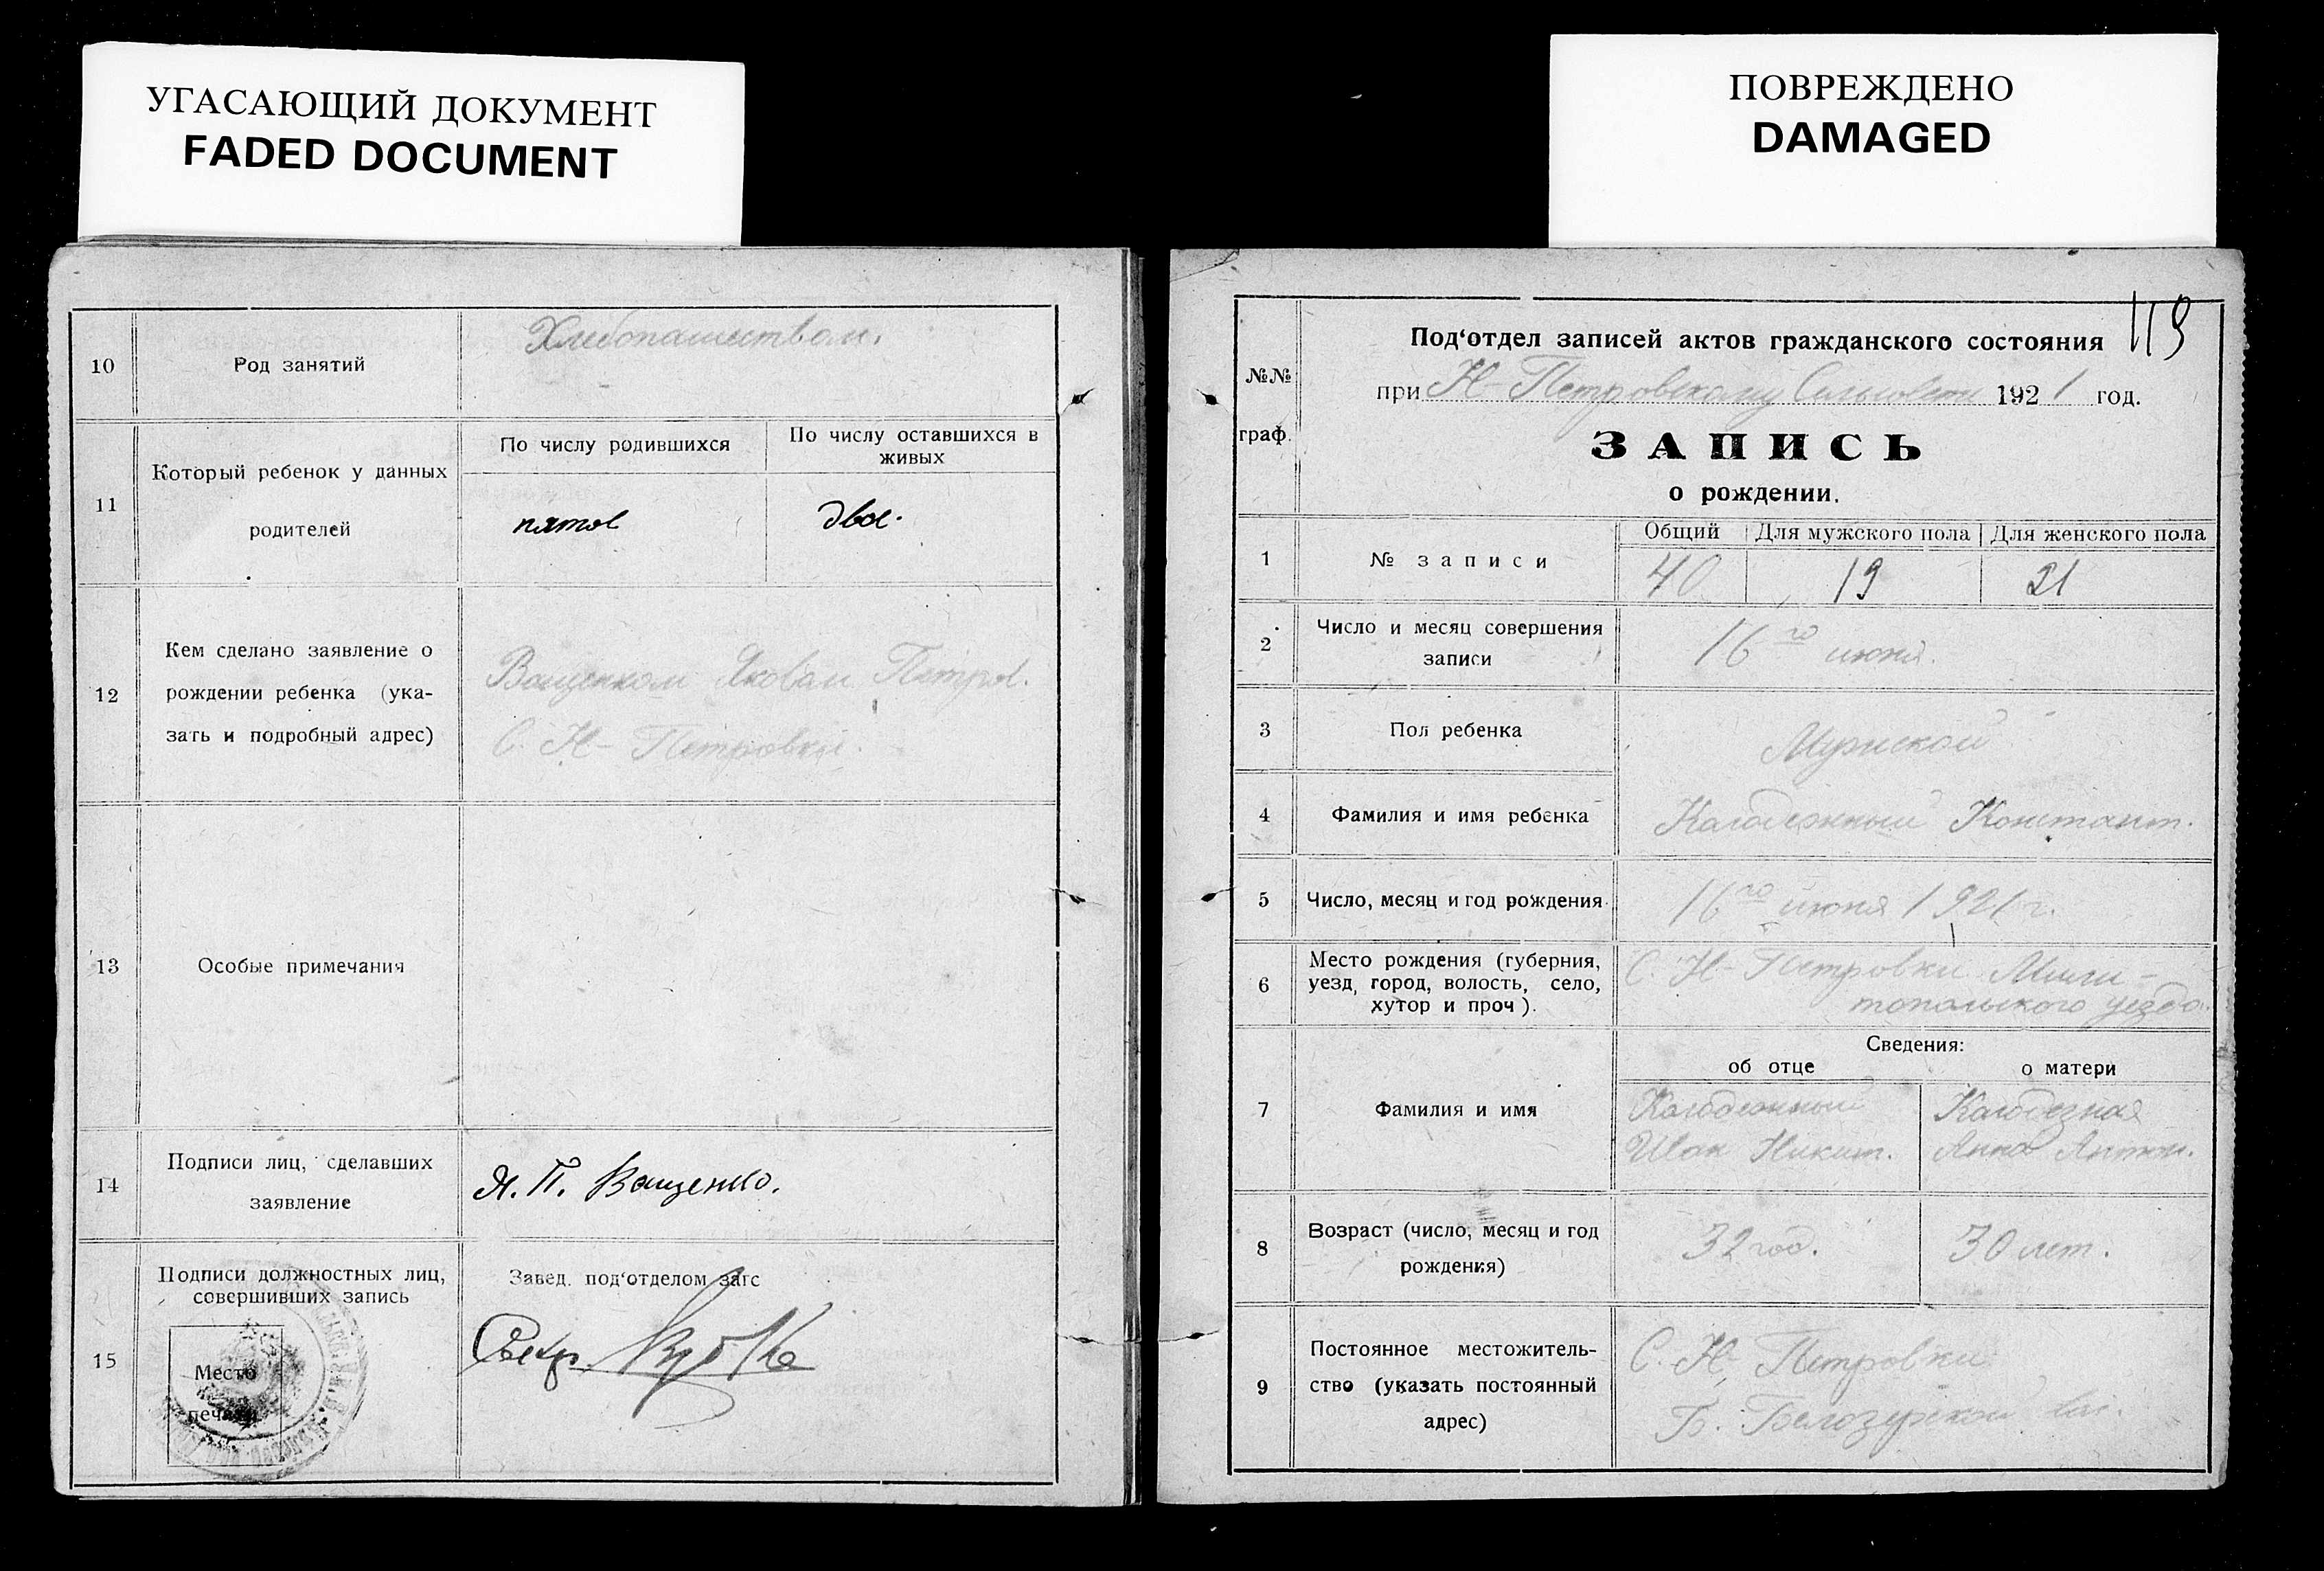 УГАСАЮЩИЙ ДОКУМЕНТ
FADED DOCUMENT
ПОВРЕЖДЕНО
DAMAGED
10
Род занятий
Хлебопашеством.
11
Который ребенок у данных
родителей
По числу родившихся
По числу оставшихся в
живых
пятое
двое.
12
Кем сделано заявление о
рождении ребенка (ука-
зать и подробный адрес)
Ващенком Яковом Петров.
С. Н-Петровки.
13
Особые примечания
14
Подписи лиц, сделавших
заявление
Я. П. Ващенко.
15
Подписи должностных лиц,
совершивших запись
Место
печати
Завед. под‘отделом загс
Секр.
119
№№
граф.
Под‘отдел записей актов гражданского состояния
при Н-Петровскому 1921 год.
ЗАПИСЬ
о рождении.
1
№ записи
Общий
Для мужского пола
Для женского пола
40
19
21
2
Число и месяц совершения
записи
16го июня.
3
Пол ребенка
Мужской
4
Фамилия и имя ребенка
Констант.
5
Число, месяц и год рождения
16го июня 1921 г.
6
Место рождения (губерния,
уезд, город, волость, село,
хутор и проч).
С. Н-Петровки Мели-
топольского уезда.
Сведения:
об отце
о матери
7
Фамилия и имя
Иван Никит.
Колодезная
Анна Антон.
8
Возраст (число, месяц и год
рождения)
32 год.
30 лет.
9
Постоянное местожитель-
ство (указать постоянный
адрес)
С. Н. Петровки
Б. Белозерской вол.